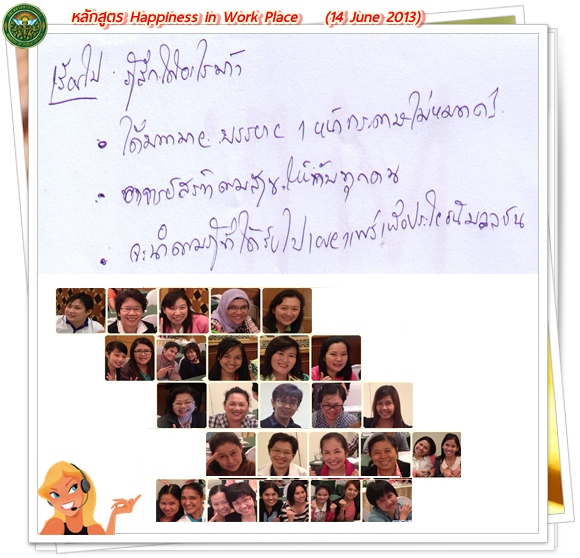 หลักสูตร Happiness in Work Place (14 June 2013)
เรียนไป รู้สึกได้อะไรบ้าง
ได้มากมาย บรรยาย 1 หน้ากระดาษไม่หมดค่ะ
อาจารย์สร้างความสุขให้กับทุกคน
จะนำความรู้ที่ได้รับไปเผยแพร่เพื่อประโยชน์มวลชน